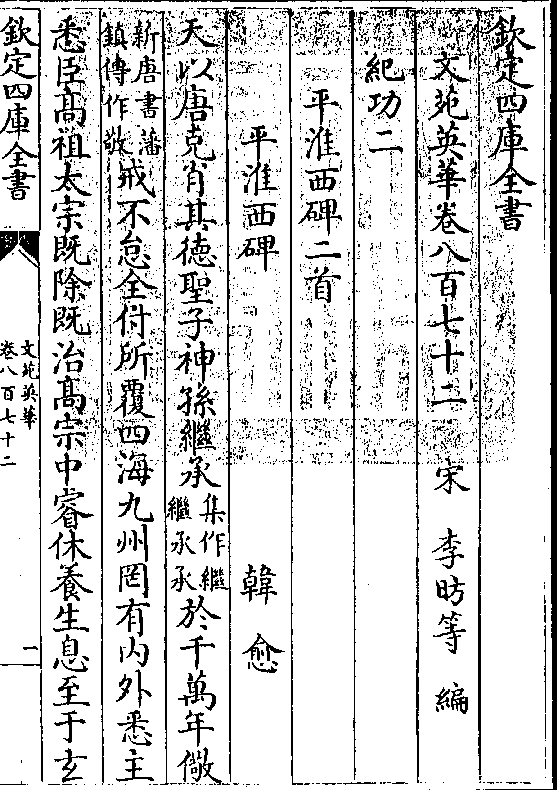 欽定四庫全書
文苑英華卷八百七十二　宋　李昉等　編
紀功二
平淮西碑二首
平淮西碑　韓愈
天以唐克肖其德聖子神孫繼承集作繼繼承承於千萬年儆
新唐書藩鎮傳作敬戒不怠全付所覆四海九州罔有内外悉主
悉臣髙祖太宗既除既治髙宗中睿休養生息至于玄
欽定四庫全書
文苑英華
卷八百七十二
一